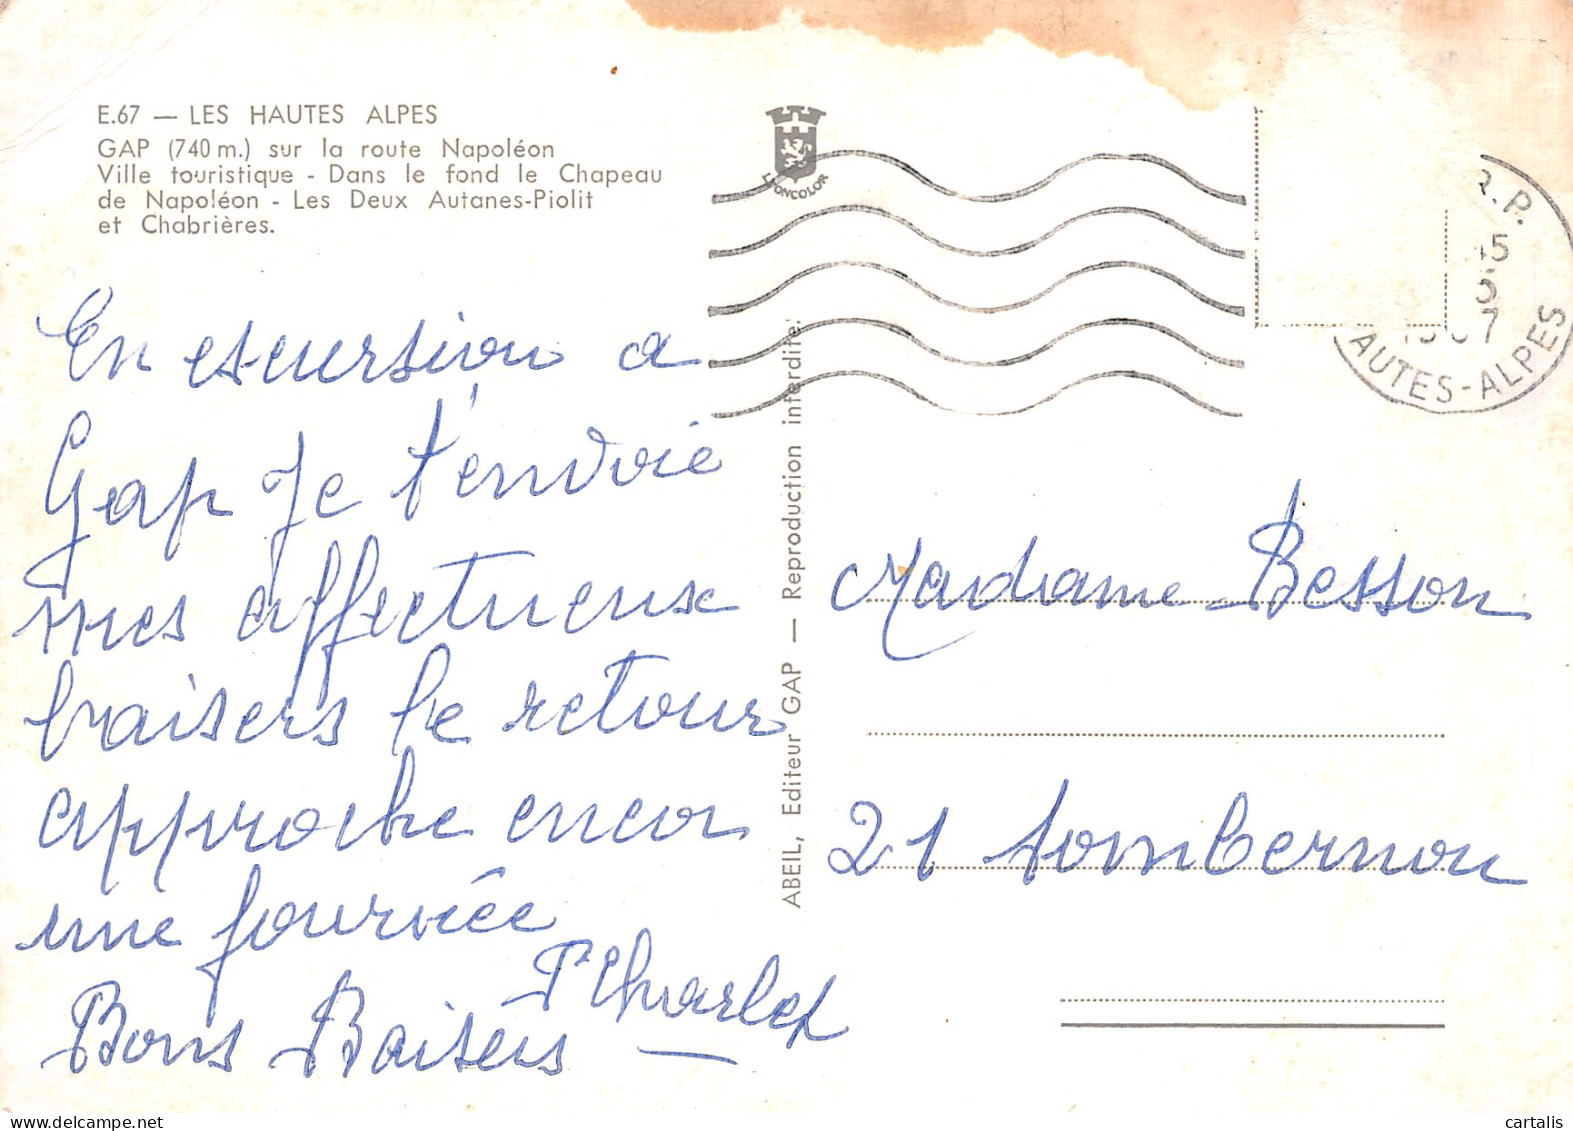 E.67 — LES HAUTES ALPES
GAP (740 m.) sur la route Napoléon
Ville touristique - Dans le fond le Chapeau
de Napoléon - Les Deux Autanes-Piolit
et Chabrières.
LYONCOLOR
R.P.
45
5
1967
AUTES-ALPES
En escursion a
Gap Je t'envoie
mes affectueux
baisers le retour
approche encor
une journée
P Charlet
Bons Baisers
ABEIL, Editeur GAP — Reproduction interdite.
Madame Besson
21 Sombernon
cartalis